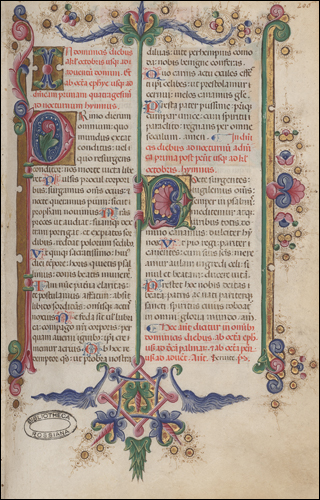 In dominicis diebus
a kl' octobris usq3 ad
adventū domini. Et
ab octa ephye usq3 ad
ad nocturnum hymnus.
Primo dierum
omnium: quo
mundus extat
conditus: vel
quo resurgens
conditor: nos morte victa li
beret. Pulsis procul torpori
bus: surgamus omnes ocius: et
nocte queramus pium: sicut
prophetam novimus. Nostras
preces ut audiat: suamq3 dex
teram porrigat: et expiatos sor
dibus: reddat polorum sedibus
Ut quiq3 sacratissimo: huius
diei tempore: horis quietis psal
limus: donis beatis muneret.
Iam nunc paterna claritas:
te postulamus affatim: absit
libido sordidans: omnisq3 actus
noxius. Ne feda sit vel lubrica
compago nostri corporis: per
quam averni ignibus: ipsi cre
memur acrius. Ob hoc re
demptor q̄s: ut probra nostra
diluas: vite perhempnis commo
da: nobis benigne conferas.
Quo carnis actu exules: effe
cti ipsi celibes: ut prestolamur
cernui: melos canamus glīe.
Presta pater piissime: patriq3
compar unice: cum spiritu
paraclito: regnans per omne
seculum. Amen.
dīcis diebus ad nocturnū
prima post pent usq3 ad kl'
octobris. hymnus.
Nocte surgentes:
vigilemus omēs:
semper in psalmis
meditemur: atq3
viribus totis do
mino canamus: dulciter hy
mnos. Ut pio regi: pariter
canentes: cum suis scīs: mere
amur aulam: ingredi celi: si
mul et beatam: ducere vitam.
Prestet hoc nobis deitas
beata: patris ac nati pariterq3
sancti: spiritus cuius resonat
in omni gloria mundo. am̄
Hec ant dicitur in omnib3
dominicis diebus: ab octa ephye
usq3 ad dn̄cā palmar: et ab octa pent
usq3 ad advent. Ant. Servite. ps.
BIBLIOTHECA
ROSSIANA